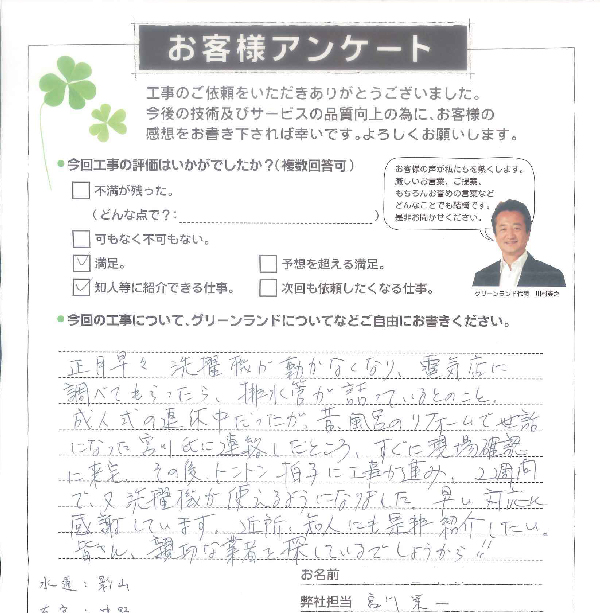 お客様アンケート
工事のご依頼をいただきありがとうございました。
今後の技術及びサービスの品質向上の為に、お客様の
感想をお書き下されば幸いです。よろしくお願いします。
●今回工事の評価はいかがでしたか？（複数回答可）
不満が残った。
（どんな点で？：　　　　　）
可もなく不可もない。
満足。
予想を超える満足。
知人等に紹介できる仕事。
次回も依頼したくなる仕事。
お客様の声が私たちを熱くします。
厳しいお言葉、ご提案、
もちろんお誉めの言葉など
どんなことでも結構です。
是非お聞かせください。
グリーンランド代表
●今回の工事について、グリーンランドについてなどご自由にお書きください。
正月早々 洗濯機が動かなくなり、電気店に
調べてもらったら、排水管が詰っているとのこと。
成人式の連休中だったが、昔風呂のリフォームで世話
になった宮川氏に連絡したところ、すぐに現場確認
に来宅 その後トントン拍子に工事が進み、2週間
で、又洗濯機が使えるようになりました。早い対応に
感謝しています。近所、知人にも是非紹介したい。
皆さん、親切な業者を探しているでしょうから!!
お名前
水道：影山
弊社担当 宮川 栄一